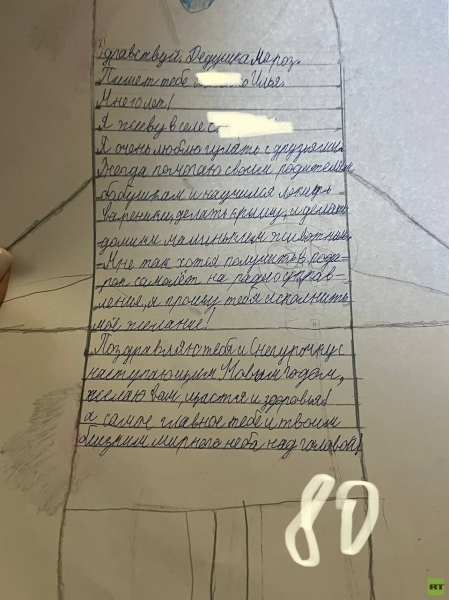 Здравствуй, Дедушка Мороз.
Пишет тебе Илья.
Мне 9 лет!
Я живу в селе С
Я очень люблю гулять с друзьями.
Всегда помогаю своим родителям
бабушкам и научился лепить
вареники, делать крышу, и делать
домики маминьким животным.
Мне так хотся получить в пода-
рок самолёт на радиоуправ-
лении, я прошу тебя исполнить
моё желание!
Поздравляю тебя и Снегурочку с
наступающим Новым годом,
желаю вам, щастя и здоровья
а самое главное тебе и твоим
близким мирного неба над головой,
80
RT